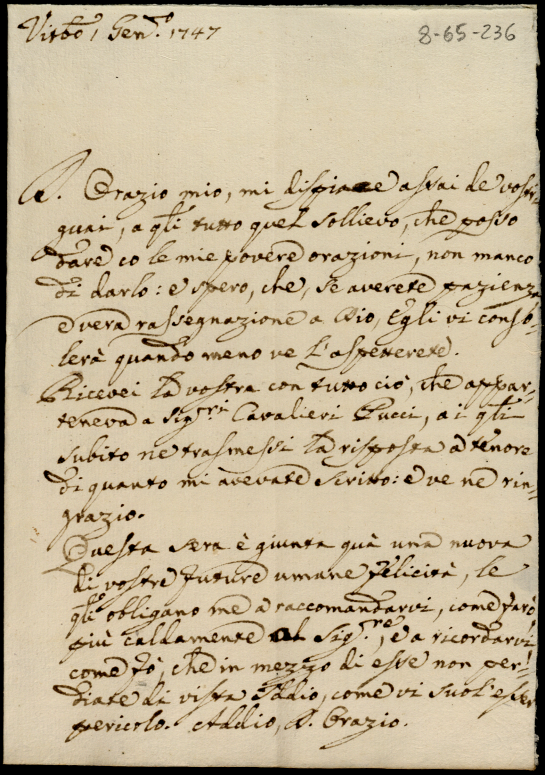 Vitbo 1 Gen.º 1747
8-65-236
D. Orazio mio, mi dispiace assai de vostri
guai, a qli tutto quel sollievo, che posso
dare co le mie povere orazioni, non manco
di darlo: e spero, che, se averete pazienza
e vera rassegnazione a Dio, Egli vi conso-
lerà quando meno ve l'aspetterete.
Ricevei la vostra con tutto ciò, che appar-
teneva a Sig.ri Cavalieri Pucci, a i qli
subito ne trasmessi la risposta a tenore
di quanto mi avevate scritto: e ve ne rin-
grazio.
Questa sera è giunta quà una nuova
di vostre future umane felicità, le
qli obligano me a raccomandarvi, come farò
più caldamente al Sig.re, e a ricordarvi
come fò, che in mezzo di esse non per-
diate di vista Iddio, come vi suol esser
pericolo. Addio, D. Orazio.